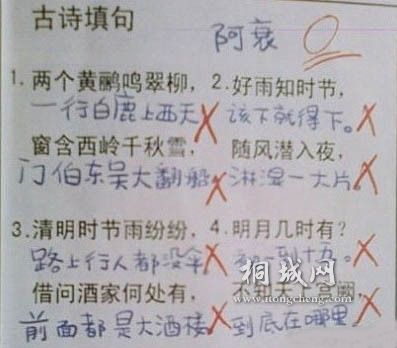 古诗填句
阿衰
1. 两个黄鹂鸣翠柳，
一行白鹿上西天
窗含西岭千秋雪，
门伯东吴大翻船
2. 好雨知时节，
该下就得下。
随风潜入夜，
淋湿一大片。
3. 清明时节雨纷纷，
路上行人都没伞
借问酒家何处有，
前面都是大酒楼
4. 明月几时有？
初一到十五。
不知天上宫阙，
到底在哪里
桐城网
www.itongcheng.com